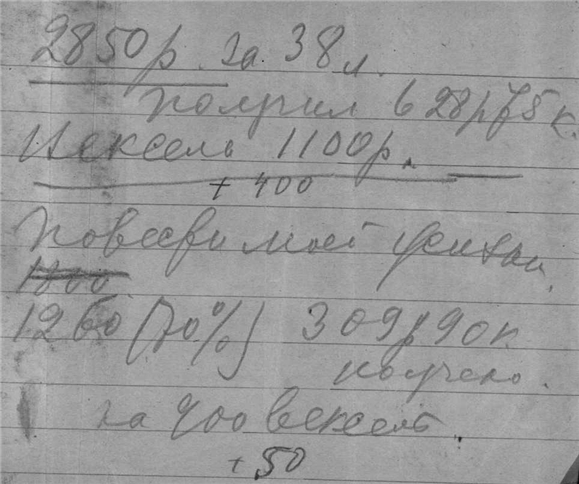 2850р. за 38 л.
получил 628р 75 к.
Вексель 1100р.
+ 400
1800
1260 (70%) 309р 90к
получено.
на 400 вексель.
+ 50